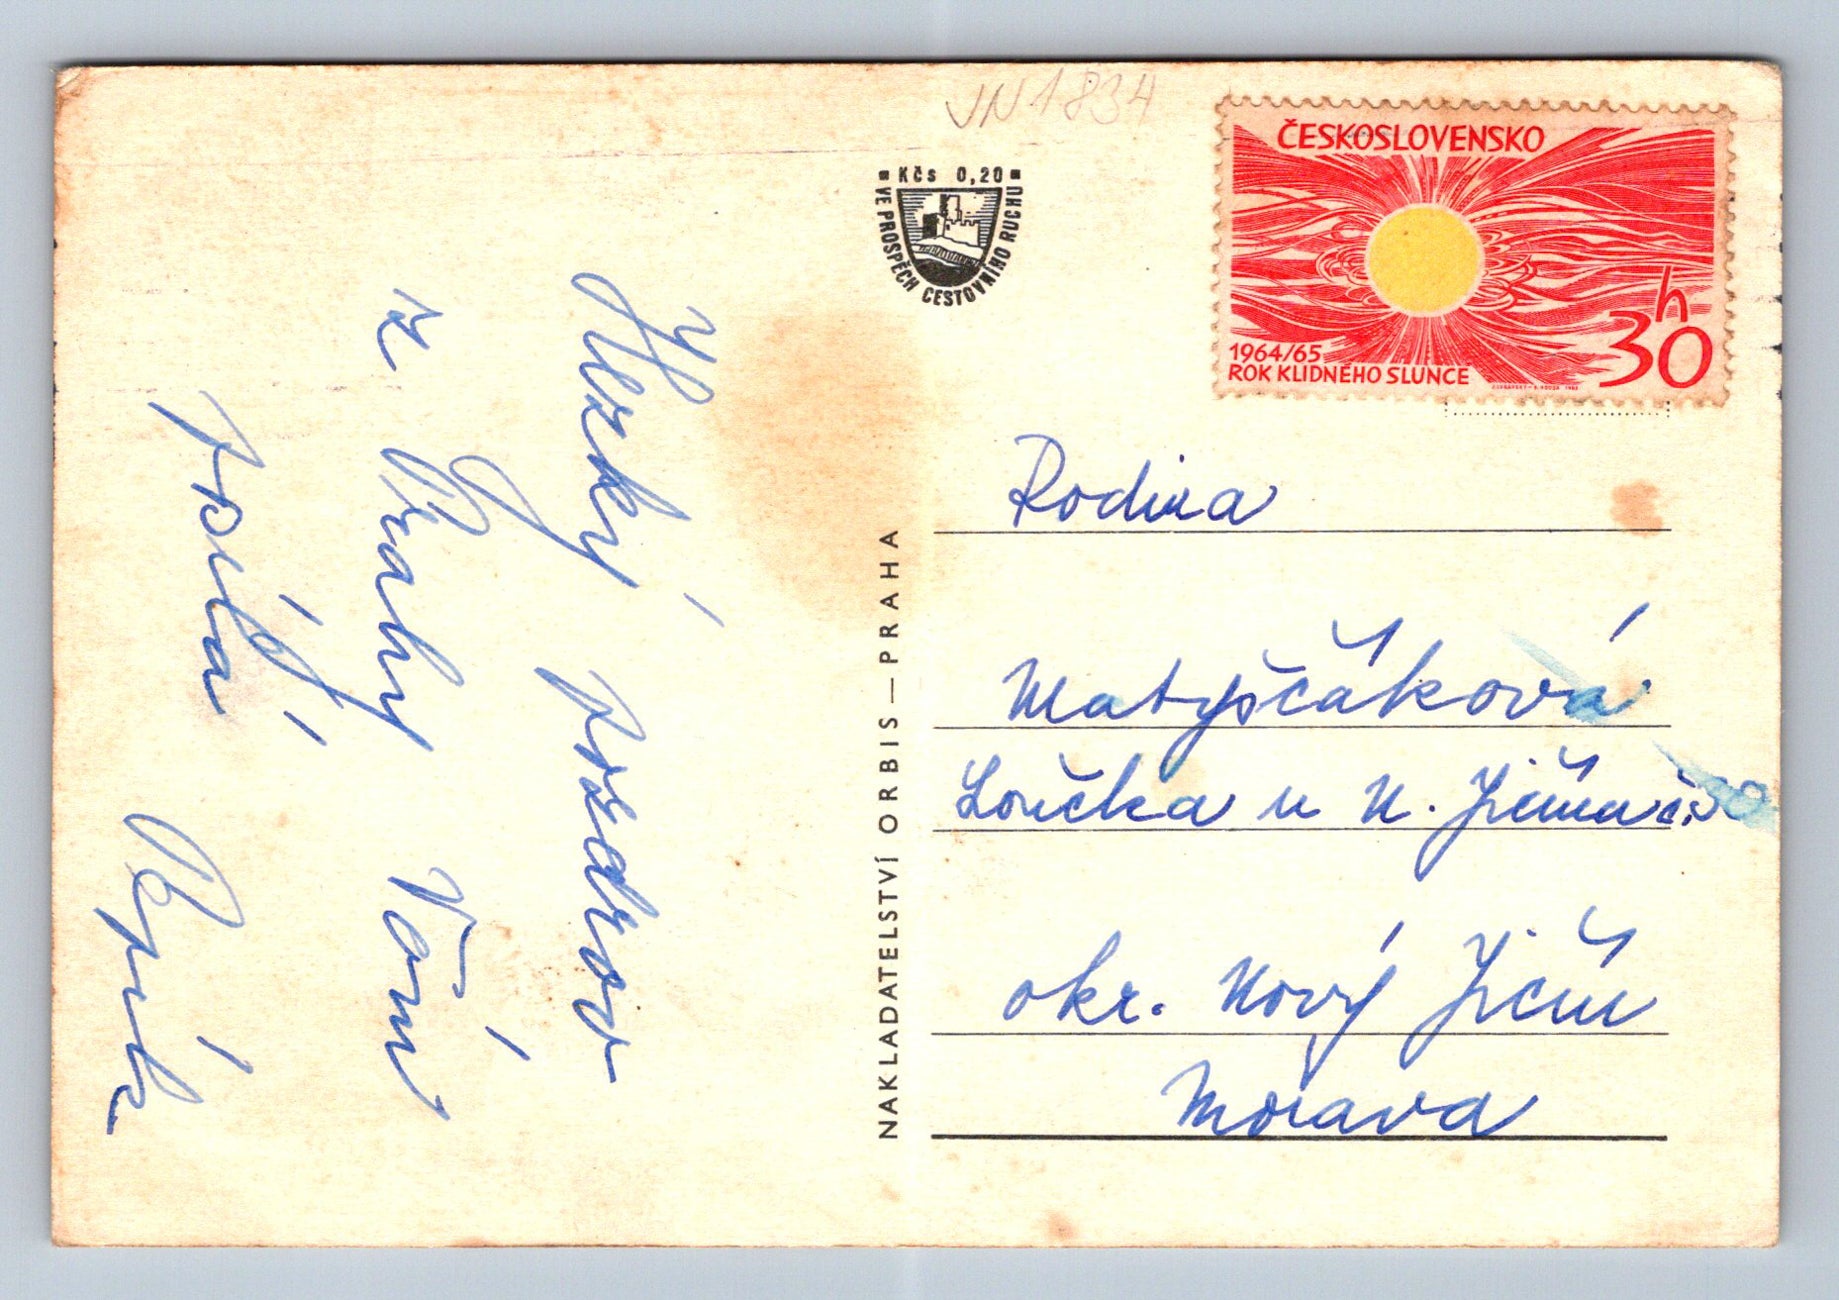 Hezký pozdrav
z Prahy Vám
posílá
JN 1834
Kčs 0,20
VE PROSPĚCH CESTOVNÍHO RUCHU
NAKLADATELSTVÍ ORBIS — PRAHA
ČESKOSLOVENSKO
30 h
1964/65
ROK KLIDNÉHO SLUNCE
Rodina
Matyščáková
Loučka u N. Jičína č.
okr. Nový Jičín
Morava